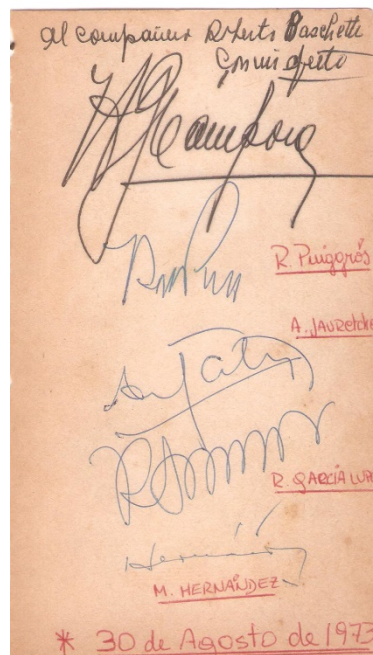 Al compañero Roberto Baschetti
Con mi afecto
HJCampora
R. Puiggrós
A. JAURETche
R. GARCÍA LUP
Hernández
M. HERNÁNDEZ
* 30 de Agosto de 1973